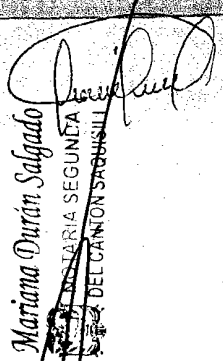 Mariana Durán Salgado
NOTARIA SEGUNDA
DEL CANTON SAQUISILI